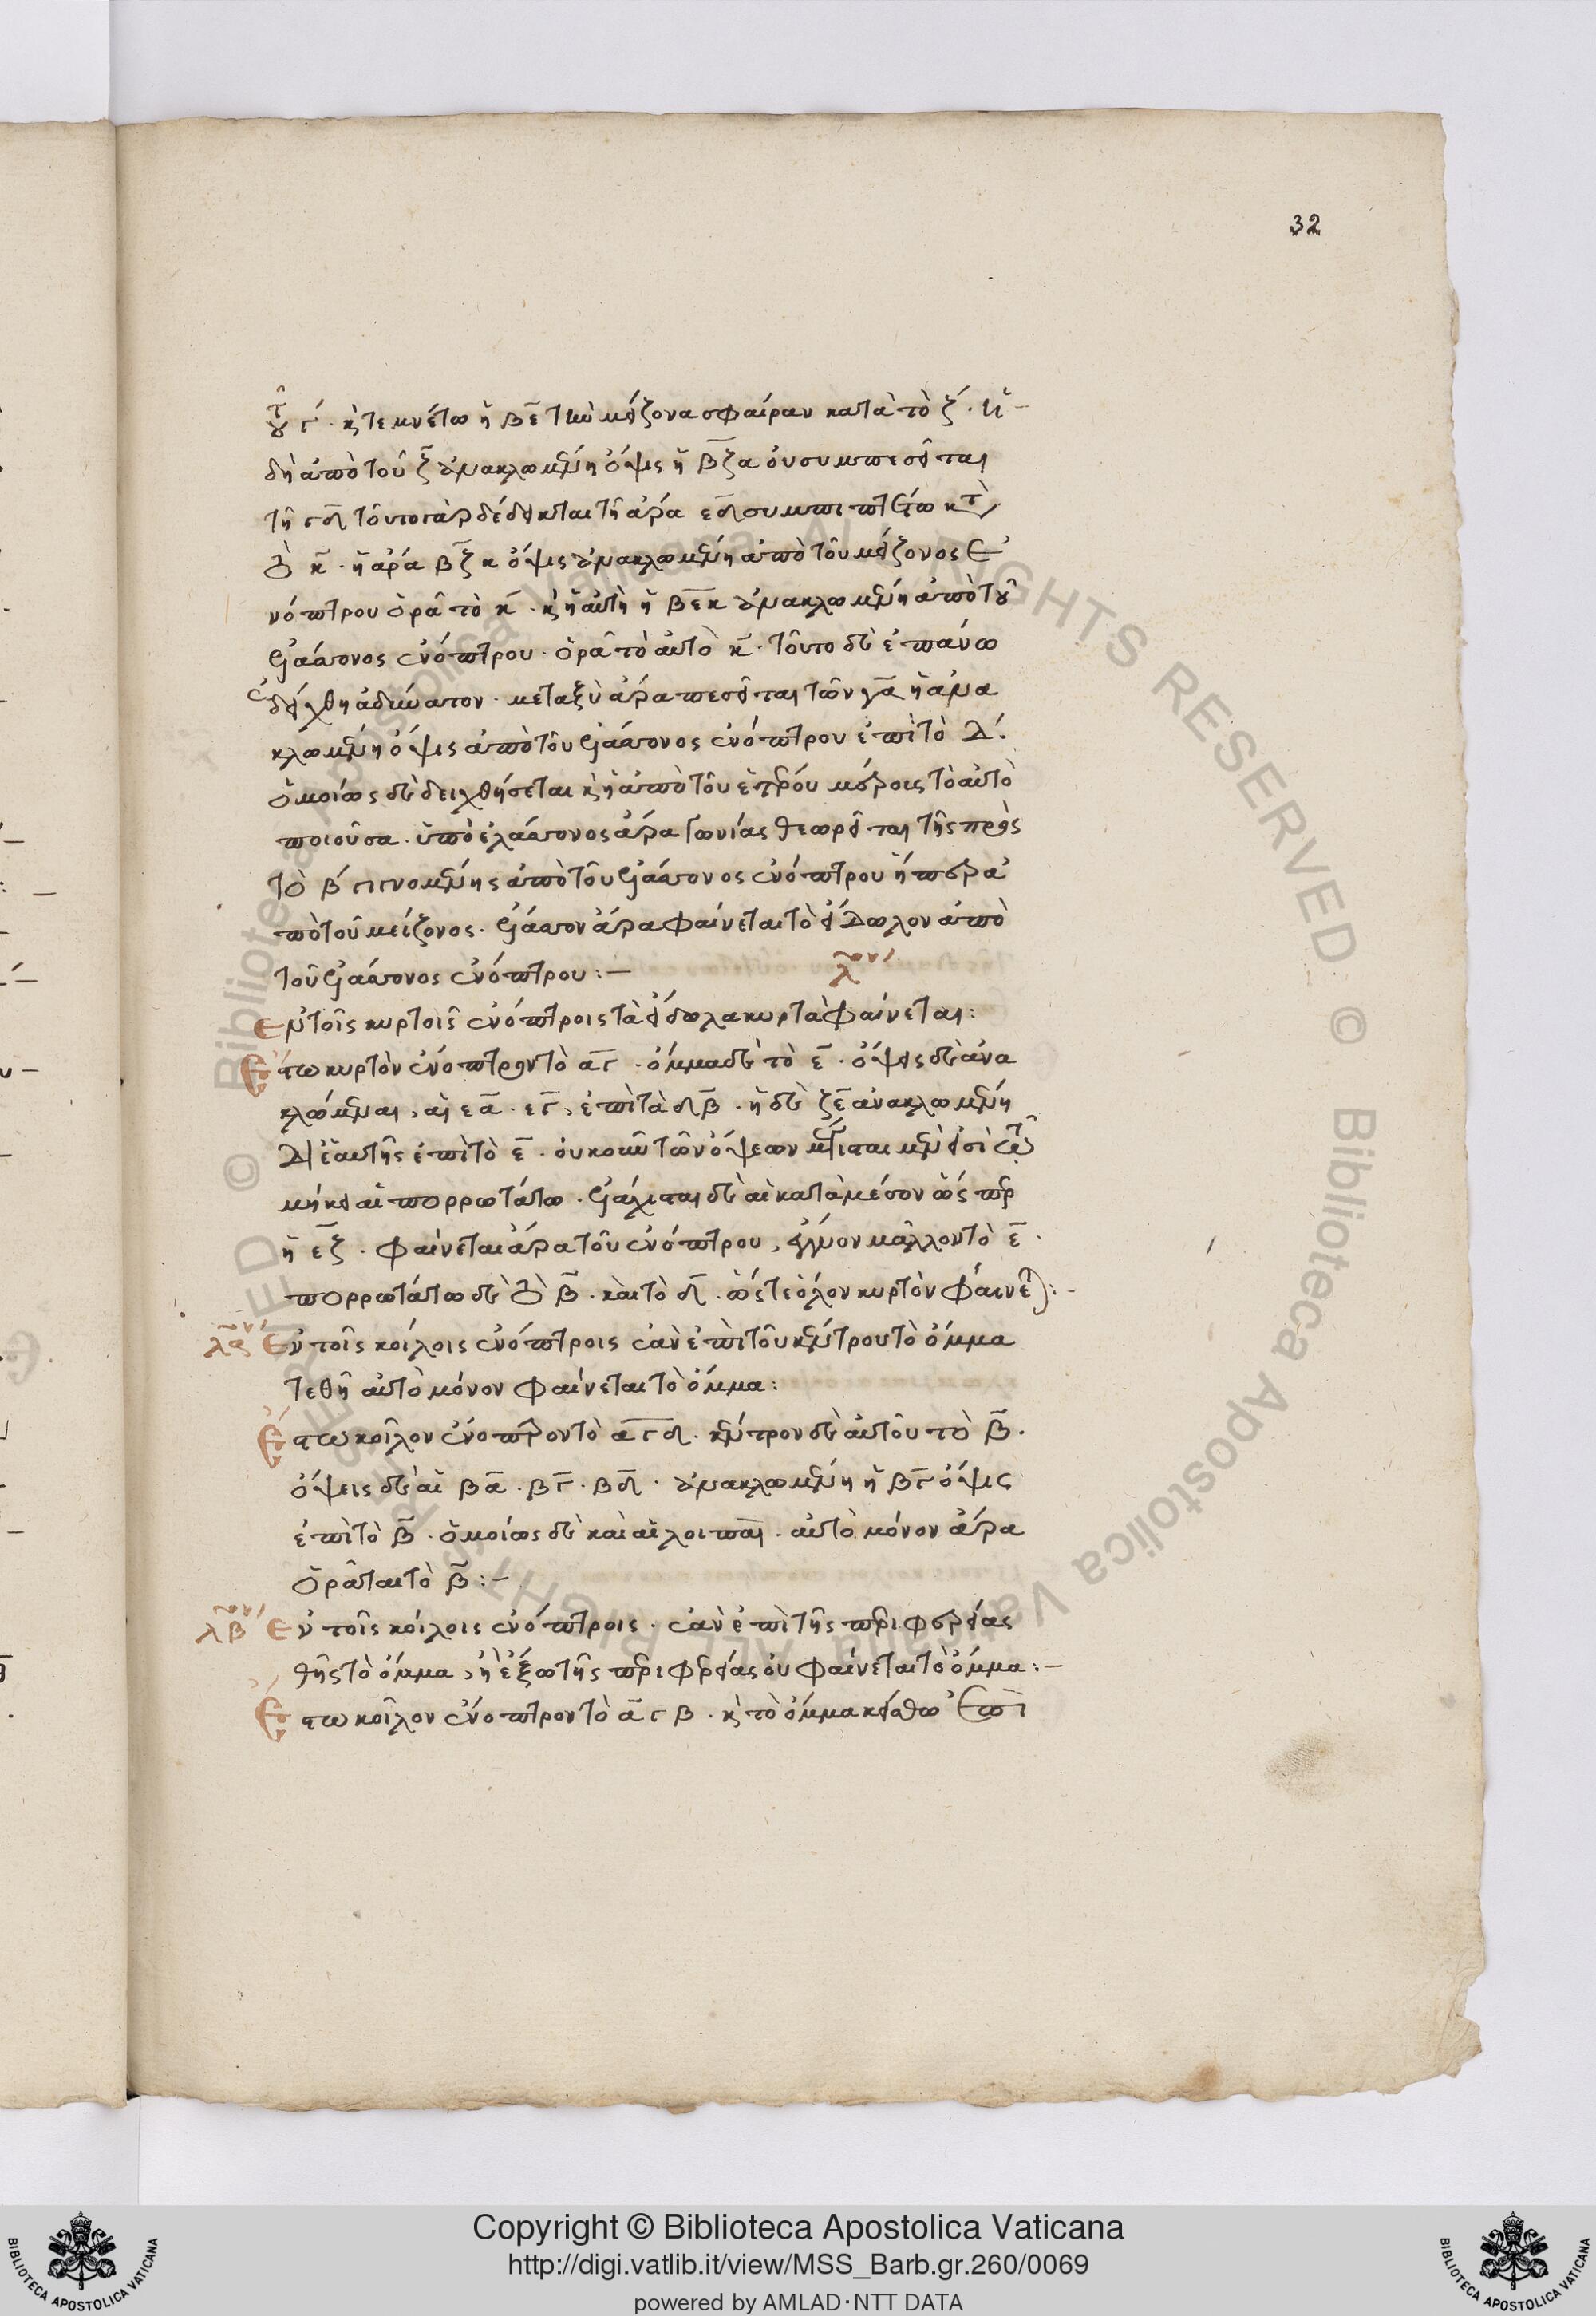 32
τοῦ γ. κ̀ τεμνέτω ἡ βε τὴν μείζονα σφαῖραν κατὰ τὸ ζ. ἡ
δὴ ἀπὸ τοῦ ζ ἀνακλωμένη ὄψις ἡ βζα οὐ συμπεσεῖται
τῆ γδ τοῦτο γὰρ δέδεικται τῆ ἄρα εδ συμπιπτέτω κατὰ
τὸ κ. ἡ ἄρα βζκ ὄψις ἀνακλωμένη ἀπὸ τοῦ μείζονος ἐ
νόπτρου ὁρᾶ τὸ κ. κ̀ ἡ αὐτὴ ἡ βεκ ἀνακλωμένη ἀπὸ τοῦ
ἐλάττονος ἐνόπτρου. ὁρᾶ τὸ αὐτὸ κ. τοῦτο δὲ ἐπάνω
ἐδείχθη ἀδύνατον. μεταξὺ ἄρα πεσεῖται τῶν γα ἡ ἀνα
κλωμένη ὄψις ἀπὸ τοῦ ἐλάττονος ἐνόπτρου ἐπὶ τὸ δ.
ὁμοίως δὲ δειχθήσεται κ̀ ἡ ἀπὸ τοῦ ἑτέρου μέρους τὸ αὐτὸ
ποιοῦσα. ὑπὸ ἐλάττονος ἄρα γωνίας θεωρεῖται τῆς πρὸς
τὸ β γινομένης ἀπὸ τοῦ ἐλάττονος ἐνόπτρου ἤπερ ἀ
πὸ τοῦ μείζονος. ἔλαττον ἄρα φαίνεται τὸ εἴδωλον ἀπὸ
τοῦ ἐλάττονος ἐνόπτρου:— λον
Ἐν τοῖς κυρτοῖς ἐνόπτροις τὰ εἴδωλα κυρτὰ φαίνεται:
Ἔστω κυρτὸν ἔνοπτρον τὸ αγ. ὄμμα δὲ τὸ ε. ὄψεις δὲ ἀνα
κλώμεναι, αἱ εα. εγ, ἐπὶ τὰ δβ. ἡ δὲ ζε ἀνακλωμένη
δι' ἑαυτῆς ἐπὶ τὸ ε. οὐκοῦν τῶν ὄψεων μέγισται μέν εἰσι τῶ
μήκει αἱ πορρωτάτω. ἐλάχισται δὲ αἱ κατὰ μέσον ὥσπερ
ἡ εζ. φαίνεται ἄρα τοῦ ἐνόπτρου, ἔγγιον μᾶλλον τὸ ε.
πορρωτάτω δὲ τὸ β. καὶ τὸ δ. ὥστε ὅλον κυρτὸν φαίνεται:-
λαον Ἐν τοῖς κοίλοις ἐνόπτροις ἐὰν ἐπὶ τοῦ κέντρου τὸ ὄμμα
τεθῆ αὐτὸ μόνον φαίνεται τὸ ὄμμα:
Ἔστω κοῖλον ἔνοπτρον τὸ αγδ. κέντρον δὲ αὐτοῦ τὸ β.
ὄψεις δὲ αἱ βα. βγ. βδ. ἀνακλωμένη ἡ βγ ὄψις
ἐπὶ τὸ β. ὁμοίως δὲ καὶ αἱ λοιπαί. αὐτὸ μόνον ἄρα
ὁρᾶται τὸ β:-
λβον Ἐν τοῖς κοίλοις ἐνόπτροις. ἐὰν ἐπὶ τῆς περιφερείας
θῆς τὸ ὄμμα, ἢ ἔξω τῆς περιφερείας οὐ φαίνεται τὸ ὄμμα:—
Ἔστω κοῖλον ἔνοπτρον τὸ αγβ. κ̀ τὸ ὄμμα κείσθω ἐπὶ
Copyright © Biblioteca Apostolica Vaticana
http://digi.vatlib.it/view/MSS_Barb.gr.260/0069
powered by AMLAD·NTT DATA